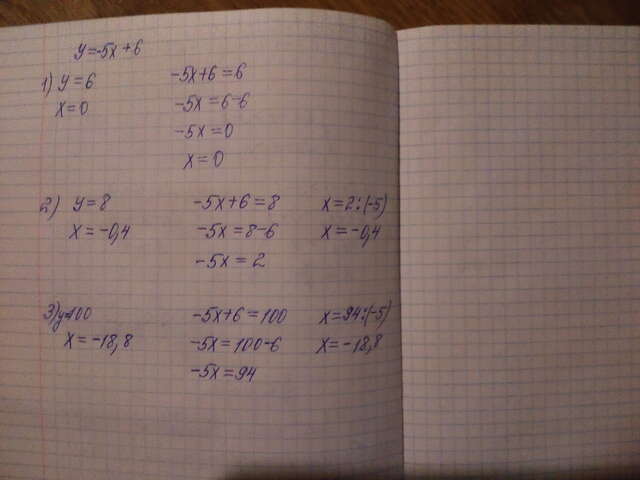 y=-5x+6
1) y=6 -5x+6=6
x=0 -5x=6-6
-5x=0
x=0
2) y=8 -5x+6=8 x=2:(-5)
x=-0,4 -5x=8-6 x=-0,4
-5x=2
3) y=100 -5x+6=100 x=94:(-5)
x=-18,8 -5x=100-6 x=-18,8
-5x=94